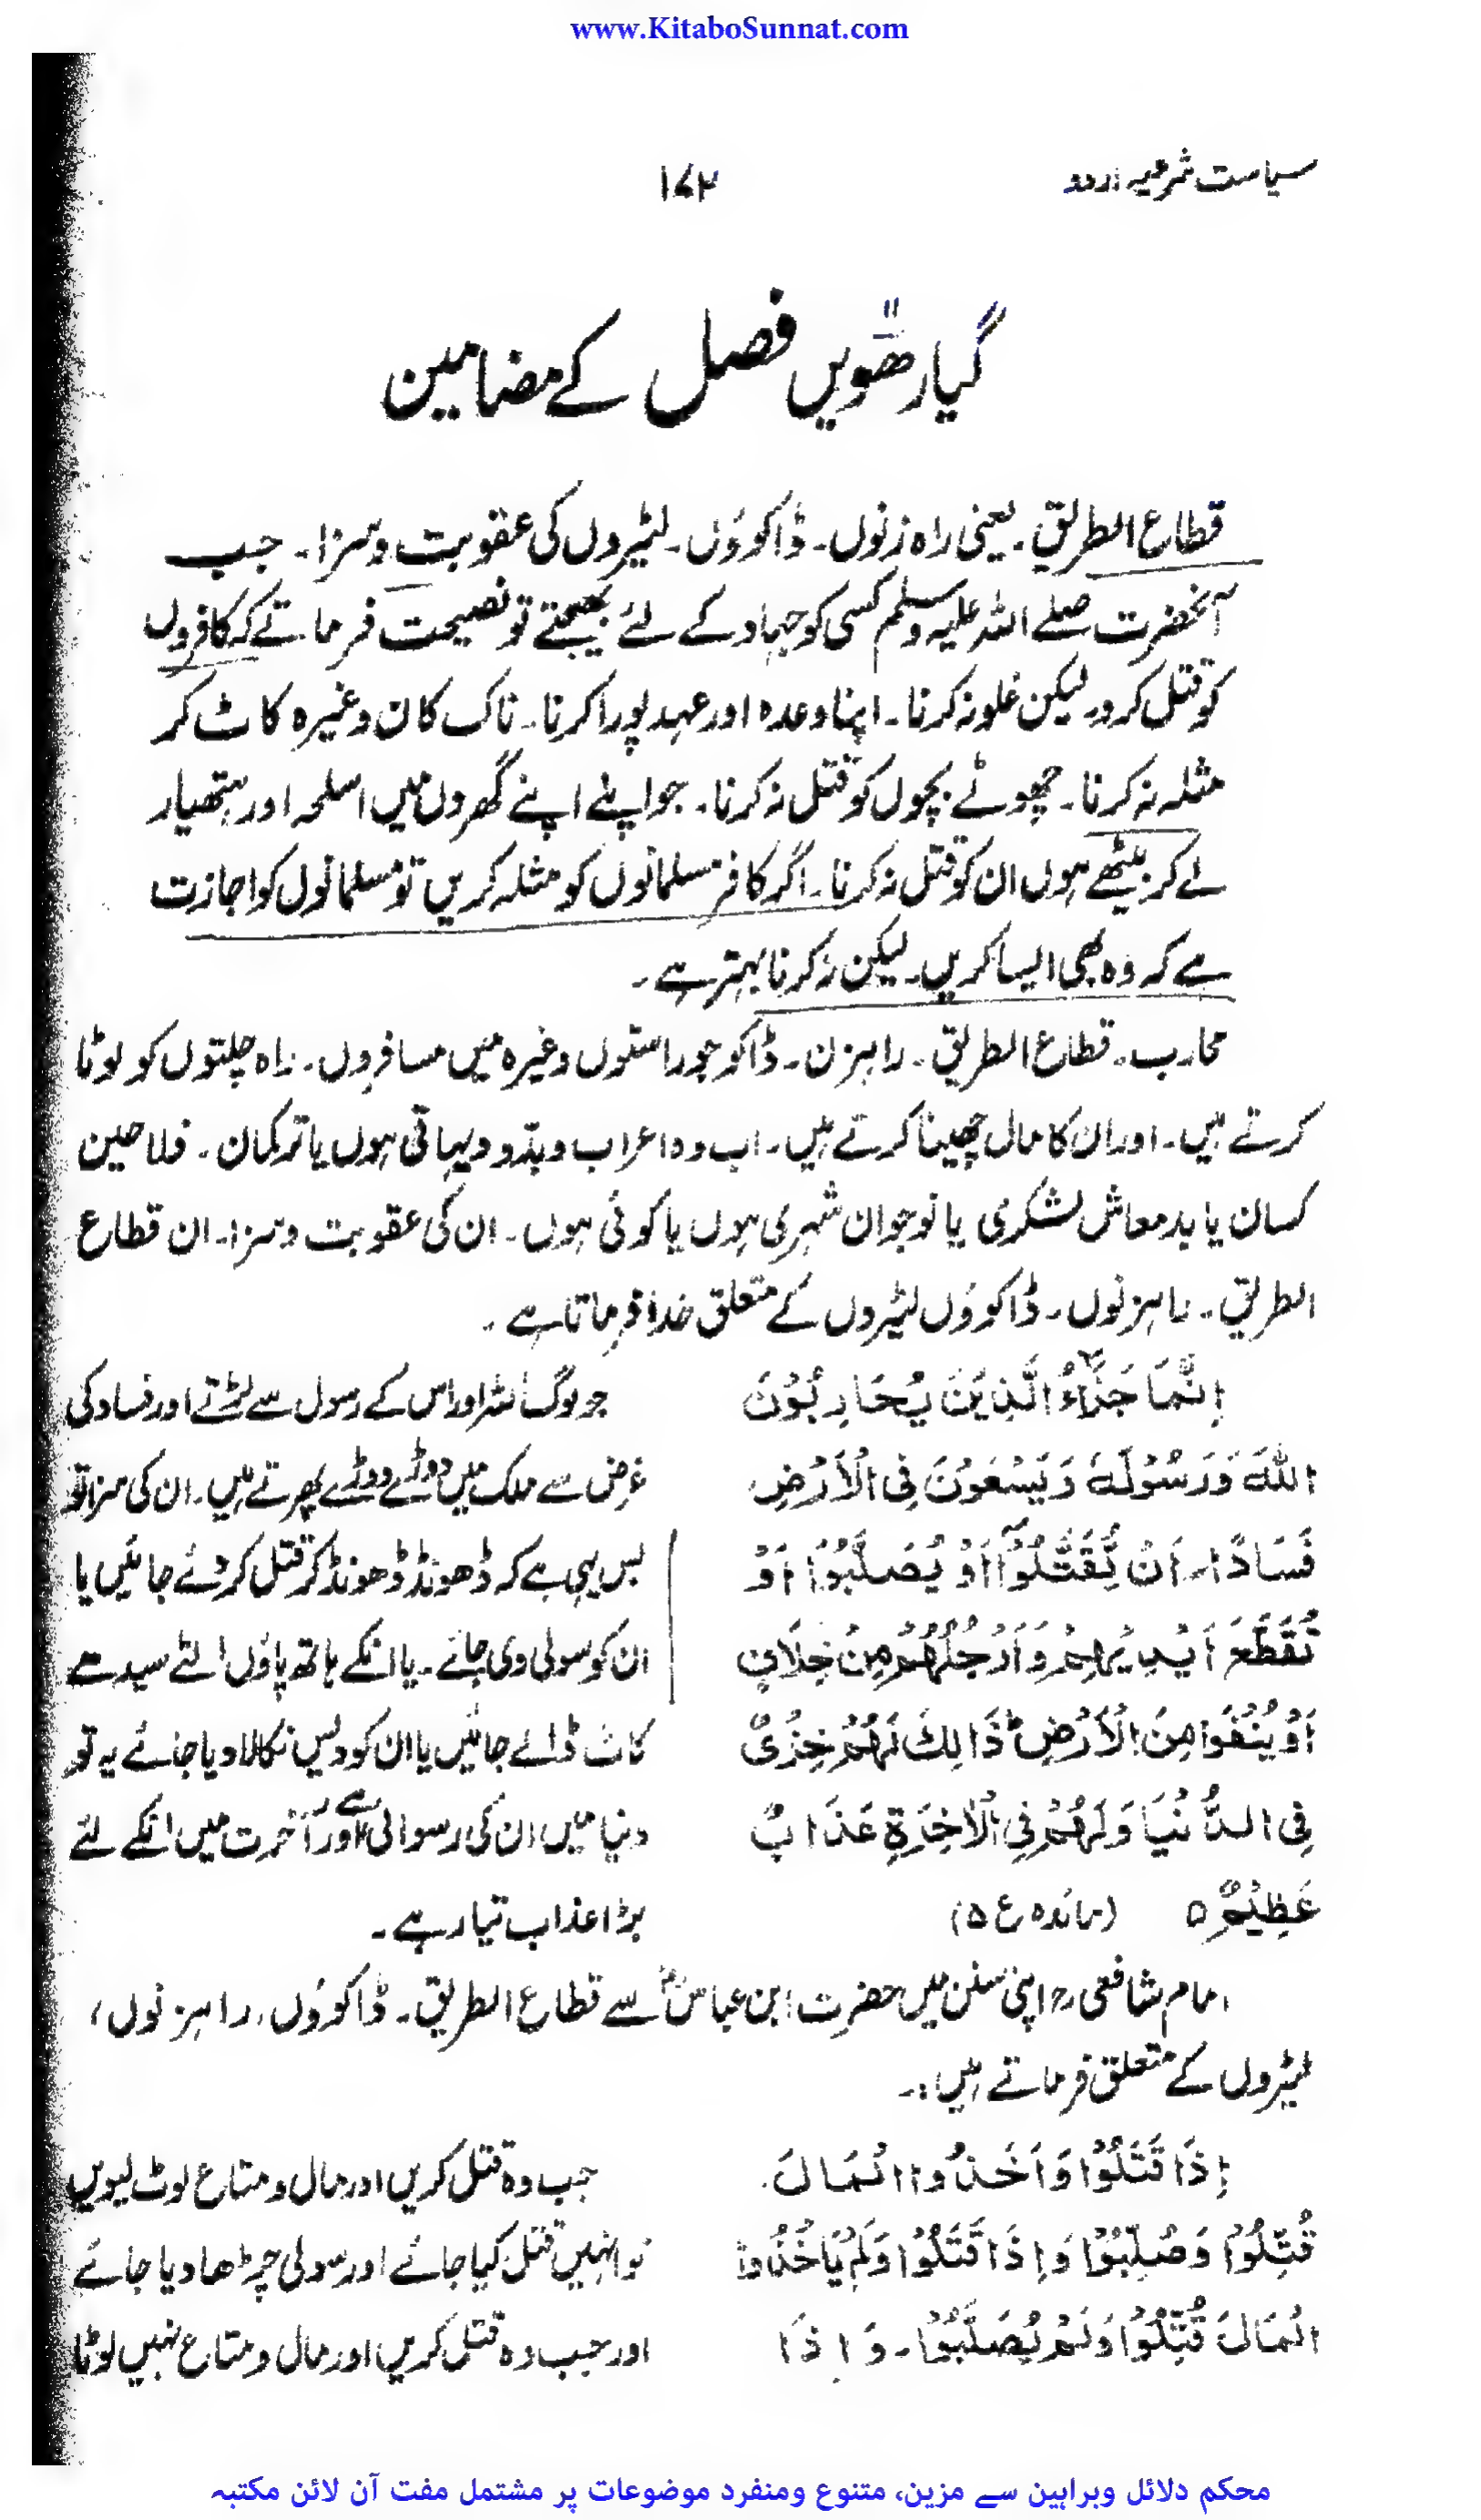 www.KitaboSunnat.com
سیاست شرعیہ اردو
۱۷۲
گیارھویں فصل کے مضامین
قطاع الطریق۔ یعنی راہ زنوں۔ ڈاکوؤں۔ لٹیروں کی عقوبت وسزا۔ جب
آنحضرت صلے اللہ علیہ وسلم کسی کو جہاد کے لئے بھیجتے تو نصیحت فرماتے کہ کافروں
کو قتل کرو، لیکن غلو نہ کرنا۔ اپنا وعدہ اور عہد پورا کرنا۔ ناک کان وغیرہ کاٹ کر
مثلہ نہ کرنا۔ چھوٹے بچوں کو قتل نہ کرنا۔ جو اپنے اپنے گھروں میں اسلحہ اور ہتھیار
لے کر بیٹھے ہوں ان کو قتل نہ کرنا۔ اگر کافر مسلمانوں کو مثلہ کریں تو مسلمانوں کو اجازت
ہے کہ وہ بھی ایسا کریں۔ لیکن نہ کرنا بہتر ہے۔
محارب۔ قطاع الطریق۔ راہزن۔ ڈاکو جو راستوں وغیرہ میں مسافروں۔ راہ چلتوں کو لوٹا
کرتے ہیں۔ اور ان کا مال چھینا کرتے ہیں۔ اب وہ اعراب وبدّو دیہاتی ہوں یا ترکمان۔ فلاحین
کسان یا بدمعاش لشکری یا نوجوان شہری ہوں یا کوئی ہوں۔ ان کی عقوبت وسزا۔ ان قطاع
الطریق۔ راہزنوں۔ ڈاکوؤں لٹیروں کے متعلق خدا فرماتا ہے۔
اِنَّمَا جَزَآءُ الَّذِیْنَ یُحَارِبُوْنَ
اللهَ وَرَسُوْلَهٗ وَیَسْعَوْنَ فِی الْاَرْضِ
فَسَادًا۔ اَنْ یُّقَتَّلُوْٓا اَوْ یُصَلَّبُوْٓا اَوْ
تُقَطَّعَ اَیْدِیْهِمْ وَاَرْجُلُهُمْ مِنْ خِلَافٍ
اَوْ یُنْفَوْا مِنَ الْاَرْضِ ؕ ذَالِكَ لَهُمْ خِزْیٌ
فِی الدُّنْیَا وَلَهُمْ فِی الْاٰخِرَةِ عَذَابٌ
عَظِیْمٌ ۵ (مائدہ ع ۵)
جو لوگ اللہ اور اس کے رسول سے لڑتے اور فساد کی
غرض سے ملک میں دوڑے دوڑے پھرتے ہیں۔ ان کی سزا تو
بس یہی ہے کہ ڈھونڈ ڈھونڈ کر قتل کر دئے جائیں یا
ان کو سولی دی جائے۔ یا انکے ہاتھ پاؤں الٹے سیدھے
کاٹ ڈالے جائیں یا ان کو دیس نکالا دیا جائے یہ تو
دنیا میں ان کی رسوائی ہے اور آخرت میں انکے لئے
بڑا عذاب تیار ہے۔
امام شافعی رح اپنی سنن میں حضرت ابن عباس رض سے قطاع الطریق۔ ڈاکوؤں، راہزنوں،
لٹیروں کے متعلق فرماتے ہیں:۔
اِذَا قَتَلُوْا وَاَخَذُوا الْمَالَ
قُتِّلُوْا وَصُلِّبُوْا وَاِذَا قَتَلُوْا وَلَمْ یَاْخُذُوا
الْمَالَ قُتِّلُوْا وَلَمْ یُصَلَّبُوْا۔ وَاِذَا
جب وہ قتل کریں اور مال و متاع لوٹ لیویں
تو انہیں قتل کیا جائے اور سولی چڑھا دیا جائے
اور جب وہ قتل کریں اور مال و متاع نہیں لوٹا
محکم دلائل وبراہین سے مزین، متنوع ومنفرد موضوعات پر مشتمل مفت آن لائن مکتبہ